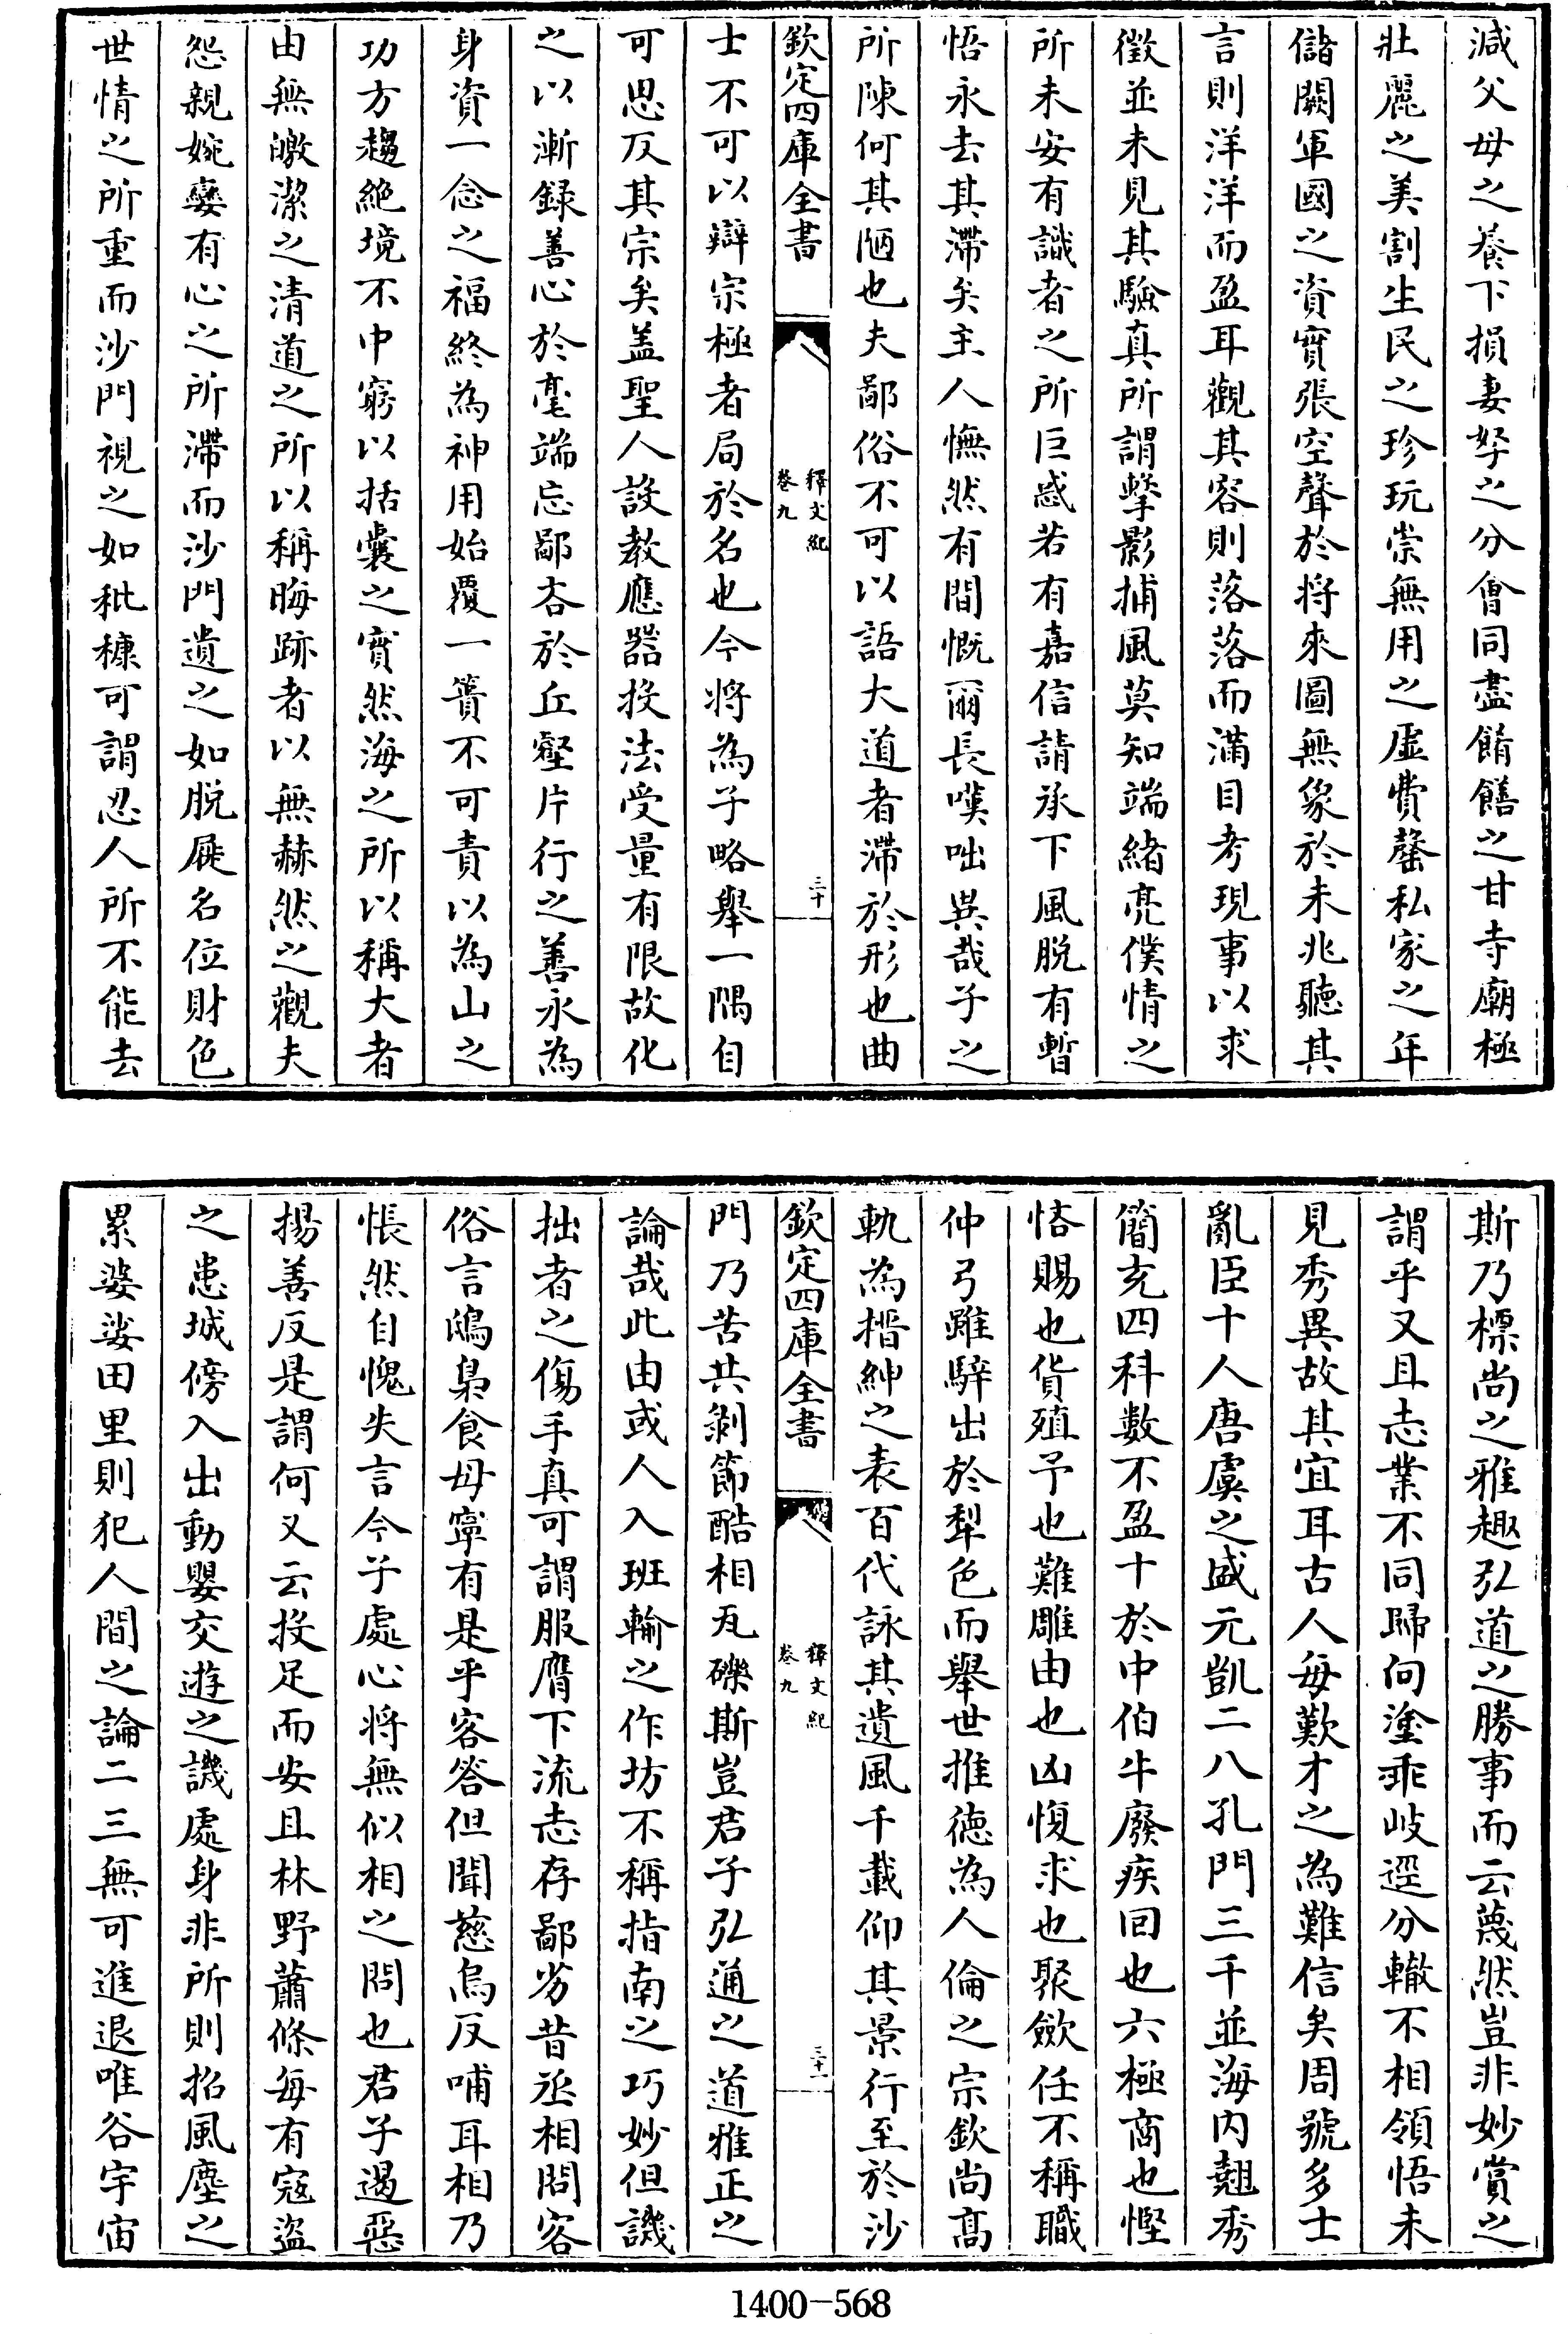 減父母之養下損妻孥之分會同盡餚饍之甘寺廟極
壯麗之美割生民之珍玩崇無用之虛費罄私家之年
儲闕軍國之資實張空聲於將來圖無象於未兆聽其
言則洋洋而盈耳觀其容則落落而滿目考現事以求
徵並未見其驗真所謂擊影捕風莫知端緒亮僕情之
所未安有識者之所巨惑若有嘉信請承下風脫有暫
悟永去其滯矣主人憮然有間慨爾長嘆咄異哉子之
所陳何其陋也夫鄙俗不可以語大道者滯於形也曲
欽定四庫全書
釋文紀
卷九
三十
士不可以辯宗極者局於名也今將為子略舉一隅自
可思反其宗矣盖聖人設教應器投法受量有限故化
之以漸録善心於毫端忘鄙吝於丘壑片行之善永為
身資一念之福終為神用始覆一簣不可責以為山之
功方趨絶境不中窮以括囊之實然海之所以稱大者
由無皦潔之清道之所以稱晦跡者以無赫然之觀夫
怨親婉孌有心之所滯而沙門遺之如脫屣名位財色
世情之所重而沙門視之如秕糠可謂忍人所不能去
斯乃標尚之雅趣弘道之勝事而云蔑然豈非妙賞之
謂乎又且志業不同歸向塗乖岐逕分轍不相領悟未
見秀異故其宜耳古人每歎才之為難信矣周號多士
亂臣十人唐虞之盛元凱二八孔門三千並海内翹秀
簡充四科數不盈十於中伯牛廢疾回也六極商也慳
悋賜也貨殖予也難雕由也凶愎求也聚斂任不稱職
仲弓雖騂出於犁色而舉世推德為人倫之宗欽尚髙
軌為搢紳之表百代詠其遺風千載仰其景行至於沙
欽定四庫全書
釋文紀
卷九
三十一
門乃苦共剝節酷相瓦礫斯豈君子弘通之道雅正之
論哉此由或人入班輸之作坊不稱指南之巧妙但譏
拙者之傷手真可謂服膺下流志存鄙劣昔丞相問客
俗言鴟梟食母寜有是乎客答但聞慈烏反哺耳相乃
悵然自愧失言今子處心將無似相之問也君子遏惡
揚善反是謂何又云投足而安且林野蕭條每有寇盜
之患城傍入出動嬰交遊之譏處身非所則招風塵之
累婆娑田里則犯人間之論二三無可進退唯谷宇宙
1400-568